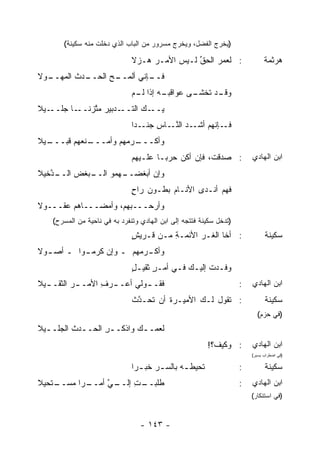 (يخرج الفضل، ويخرج مسرور من الباب الذي دخلت منه سكينة)
هرثمة : لعمر الحقّ لـيس الأمـر هـزلا
فــإني ألمــح الحــدث المهــولا
وقـد تخشـى عواقبـه إذا لـم
يــك التــدبير متّزنــا جليــلا
فـإنهم أشـد النّـاس جنـدا
وأكــرمهم وأمــنعهم قبــيلا
ابن الهادي : صدقت، فإن أكن حربـا علـيهم
وإن أبغضــهمو الـبغض الـدّخيلا
فهم أنـدى الأنـام بطـون راح
وأرحــبهم، وأمضــاهم عقــولا
(تدخل سكينة فتتجه إلى ابن الهادي وتنفرد به في ناحية من المسرح)
سكينة : أخا الغـر الأئمـةِ مـن قـريش
وأكـرمهم - وإن كرمـوا - أصـولا
وفـدت إليـك فـي أمـر ثقيـل
ابن الهادي : فقــولي أعــرفِ الأمــر الثقــيلا
سكينة : تقول لـك الأميـرة أن تحـدّث
(في حزم)
لعمــك واذكــر الحــدث الجلــيلا
ابن الهادي : وكيف؟!
(في اضطراب يسير)
سكينة : تحيطـه بالسـر خبـرا
ابن الهادي : طلبــتِ إلــيّ أمــرا مســتحيلا
(في استنكار)
- ١٤٣ -